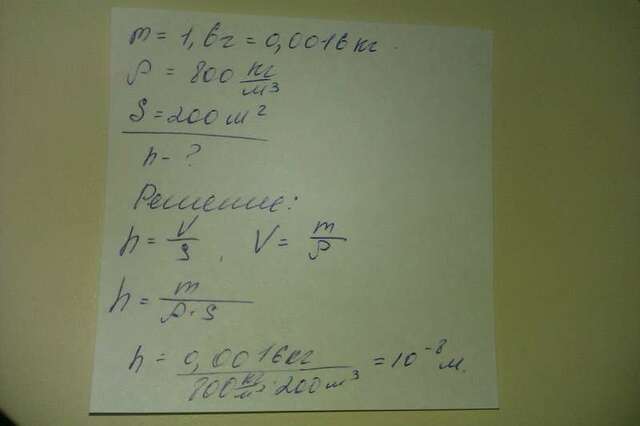 m = 1,6г = 0,0016кг.
ρ = 800 кг/м³
S = 200 м²
h - ?
Решение:
h = V/S, V = m/ρ
h = m/ρ·S
h = 0,0016кг/800 кг/м³·200м³ = 10⁻⁸ м.